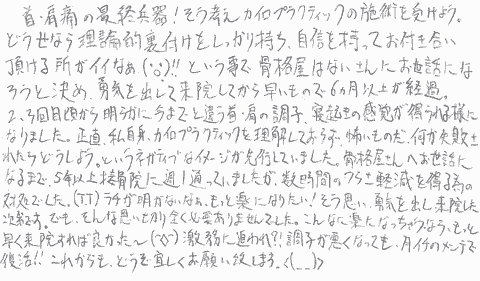 首・肩痛の最終兵器!そう考えカイロプラクティックの施術を受けよう。
どうせなら理論的裏付けをしっかり持ち、自信を持ってお付き合い
頂ける所がイイなぁ(^_^)!!という事で骨格屋はないさんにお世話にな
ろうと決め、勇気を出して来院してから早いもので6ヵ月以上が経過。
2、3回目頃から明らかに今までと違う首・肩の調子、寝起きの感覚が得られる様に
なりました。正直、私自身、カイロプラクティックを理解しておらず、怖いものだ、何か失敗さ
れたらどうしよう。というネガティブなイメージが先行していました。骨格屋さんへお世話に
なるまで、5年以上接骨院に週1通っていましたが、数時間のツラさ軽減を得る為の
対処でした。(T.T)ラチが明かないなぁ、もっと楽になりたい!そう思い、勇気を出し来院した
次第です。でも、そんな思い切り全く必要ありませんでした。こんなに楽になっちゃうなら、もっと
早く来院すれば良かった〜(^○^)激務に追われ?!調子が悪くなっても、月イチのメンテで
復活!!これからも、どうぞ宜しくお願い致します。<(_ _)>